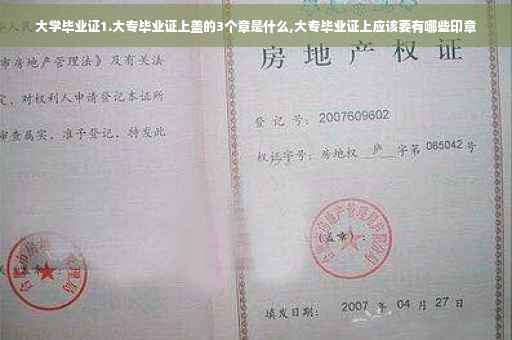 大学毕业证1.大专毕业证上盖的3个章是什么,大专毕业证上应该要有哪些印章
市房地产管理法》及有关法
定，对权利人申请登记本证所
审查属实，准予登记，特发此
房地产权证
登记号：2007609602
权证字号：房地权 庐 字第 065042 号
(盖章)：
填发日期： 2007 年 04 月 27 日